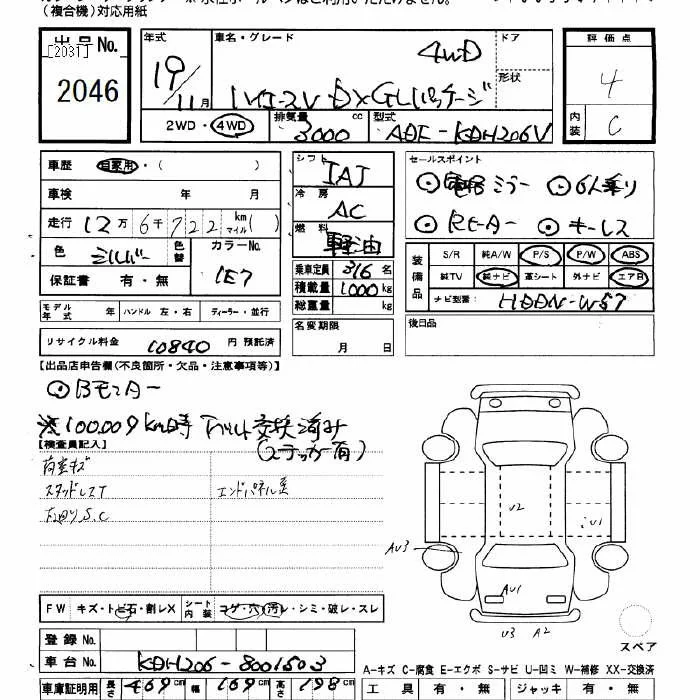 (複合機)対応用紙
出品No.
[2031]
2046
年式
19/11月
車名・グレード
4WD
ハイエースV DXGLパッケージ
ドア
形状
評価点
4
内装
C
2WD・4WD
排気量
3000 cc
型式
ADF-KDH206V
車歴 自家用・( )
車検 年 月
走行 12万6千722km マイル( )
色 シルバー 色替
カラーNo.
1E7
保証書 有・無
シフト
IAT
冷房
AC
燃料
軽油
乗車定員 3/6名
積載量 1000kg
総重量 kg
セールスポイント
電格ミラー 6人乗り
Rヒーター キーレス
装備品
S/R 純A/W P/S P/W ABS
純TV 純ナビ 革シート 外ナビ エアB
ナビ型番: HDDN-W57
モデル年式 年 ハンドル 左・右 ディーラー・並行
リサイクル料金 10840 円 預託済
名変期限
月 日
後日品
【出品店申告欄(不良箇所・欠品・注意事項等)】
Bモニター
※100,009km時 ベルト交換済み
(ステッカー有)
【検査員記入】
荷室キズ
スタッドレスT
エンドパネル歪
左回りS.C
U2
AU3
AU1
U3 A2
スペア
FW キズ・トビ石・割レX
シート内装 コゲ・穴・汚レ・シミ・破レ・スレ
登録No.
車台No. KDH206-8001503
車庫証明用 長さ 469cm 幅 169cm 高さ 198cm
A-キズ C-腐食 E-エクボ S-サビ U-凹ミ W-補修 XX-交換済
工具 有・無 ジャッキ 有・無